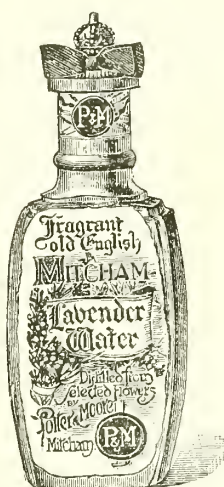 P&M
Fragrant
Old English
MITCHAM
Lavender
Water
Distilled from
Selected Flowers
BY
Potter & Moore
Mitcham.
P&M